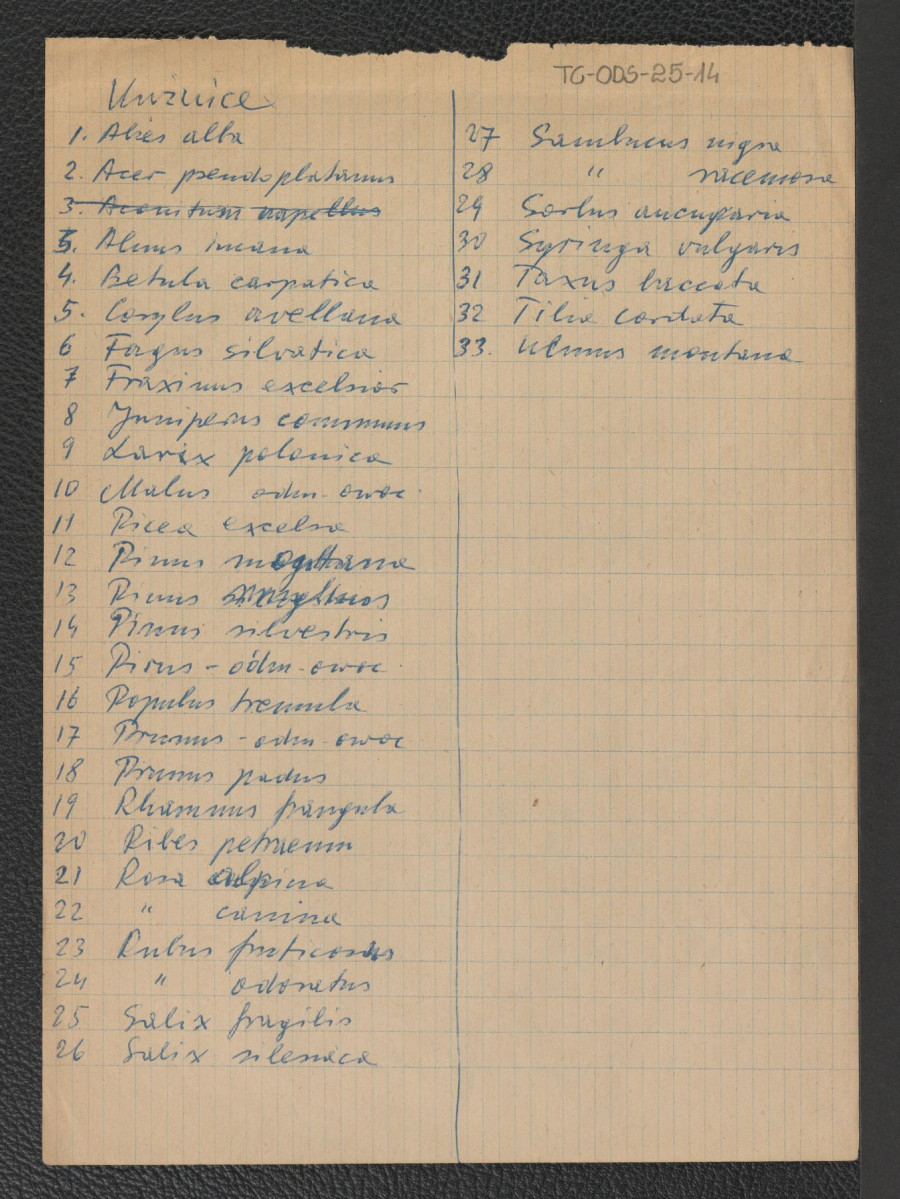 TG-ODS-25-14
Kuźnice
1. Abies alba
2. Acer pseudoplatanus
3. Aconitum napellus
3. Alnus incana
4. Betula carpatica
5. Corylus avellana
6 Fagus silvatica
7 Fraxinus excelsior
8 Juniperus communis
9 Larix polonica
10 Malus odm. owoc.
11 Picea excelsa
12 Pinus montana
13 Pinus
14 Pinus silvestris
15 Pirus - odm. owoc.
16 Populus tremula
17 Prunus - odm. owoc
18 Prunus padus
19 Rhamnus frangula
20 Ribes petraeum
21 Rosa alpina
22 " canina
23 Rubus fruticosus
24 " odoratus
25 Salix fragilis
26 Salix silesiaca
27 Sambucus nigra
28 " racemosa
29 Sorbus aucuparia
30 Syringa vulgaris
31 Taxus baccata
32 Tilia cordata
33. Ulmus montana